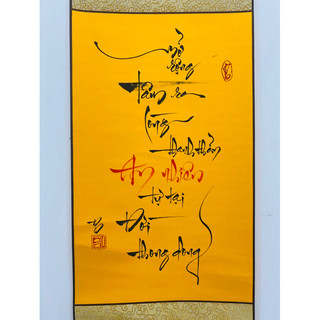 mở
rộng
tấm ra
lòng
thanh thản
An nhiên
tự tại
Đời
thong dong